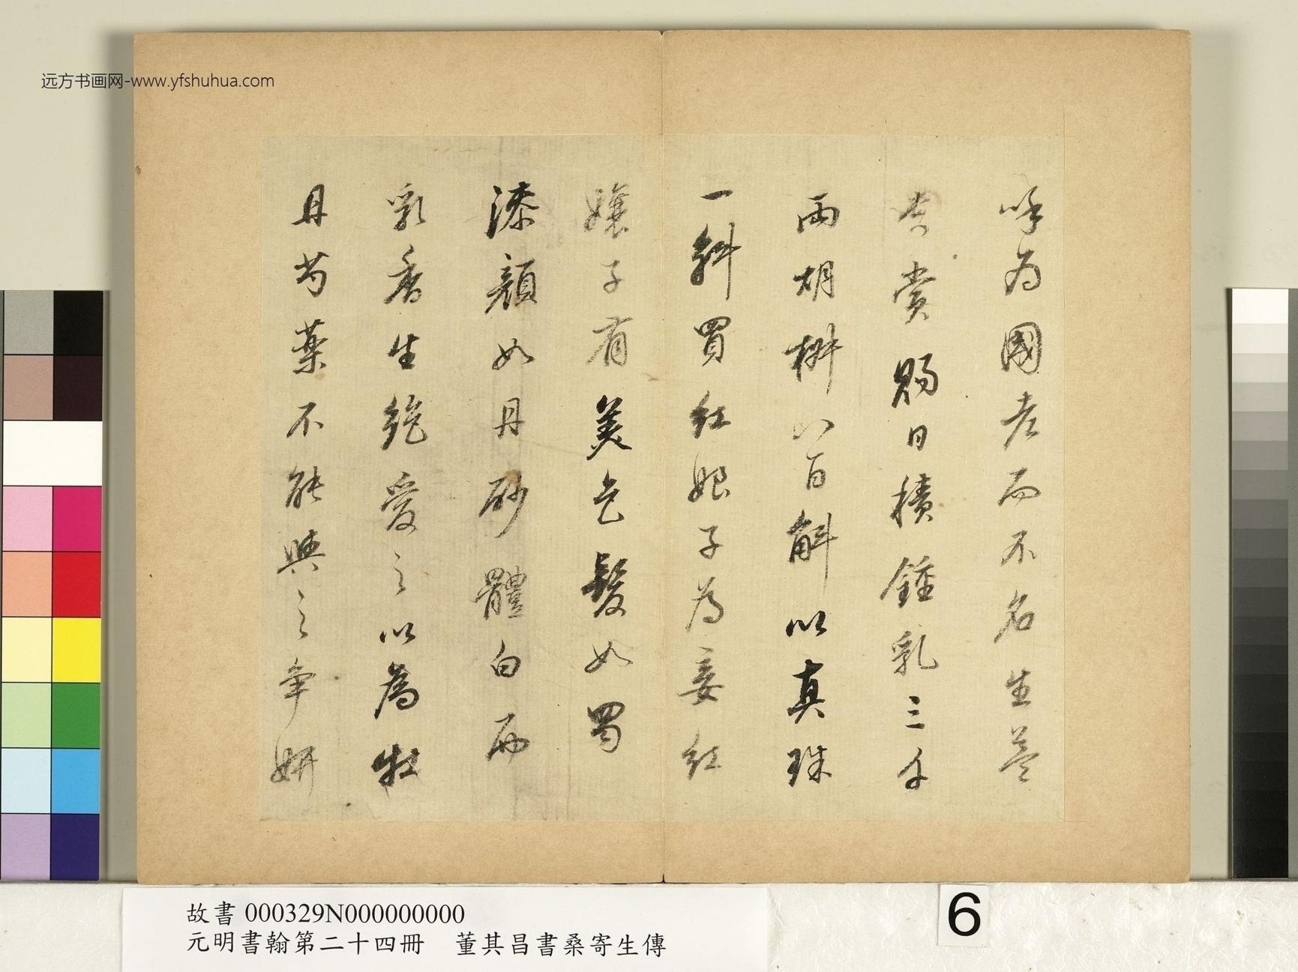 远方书画网-www.yfshuhua.com
呼为國老而不名生益
貴賞賜日積鍾乳三千
兩胡椒八百斛以真珠
一斛買紅娘子為妾紅
孃子有美色髮如蜀
漆顔如丹砂體白而
乳香生絶愛之以為牡
丹芍薬不能與之争妍
故書 000329N000000000
元明書翰第二十四冊 董其昌書桑寄生傳
6